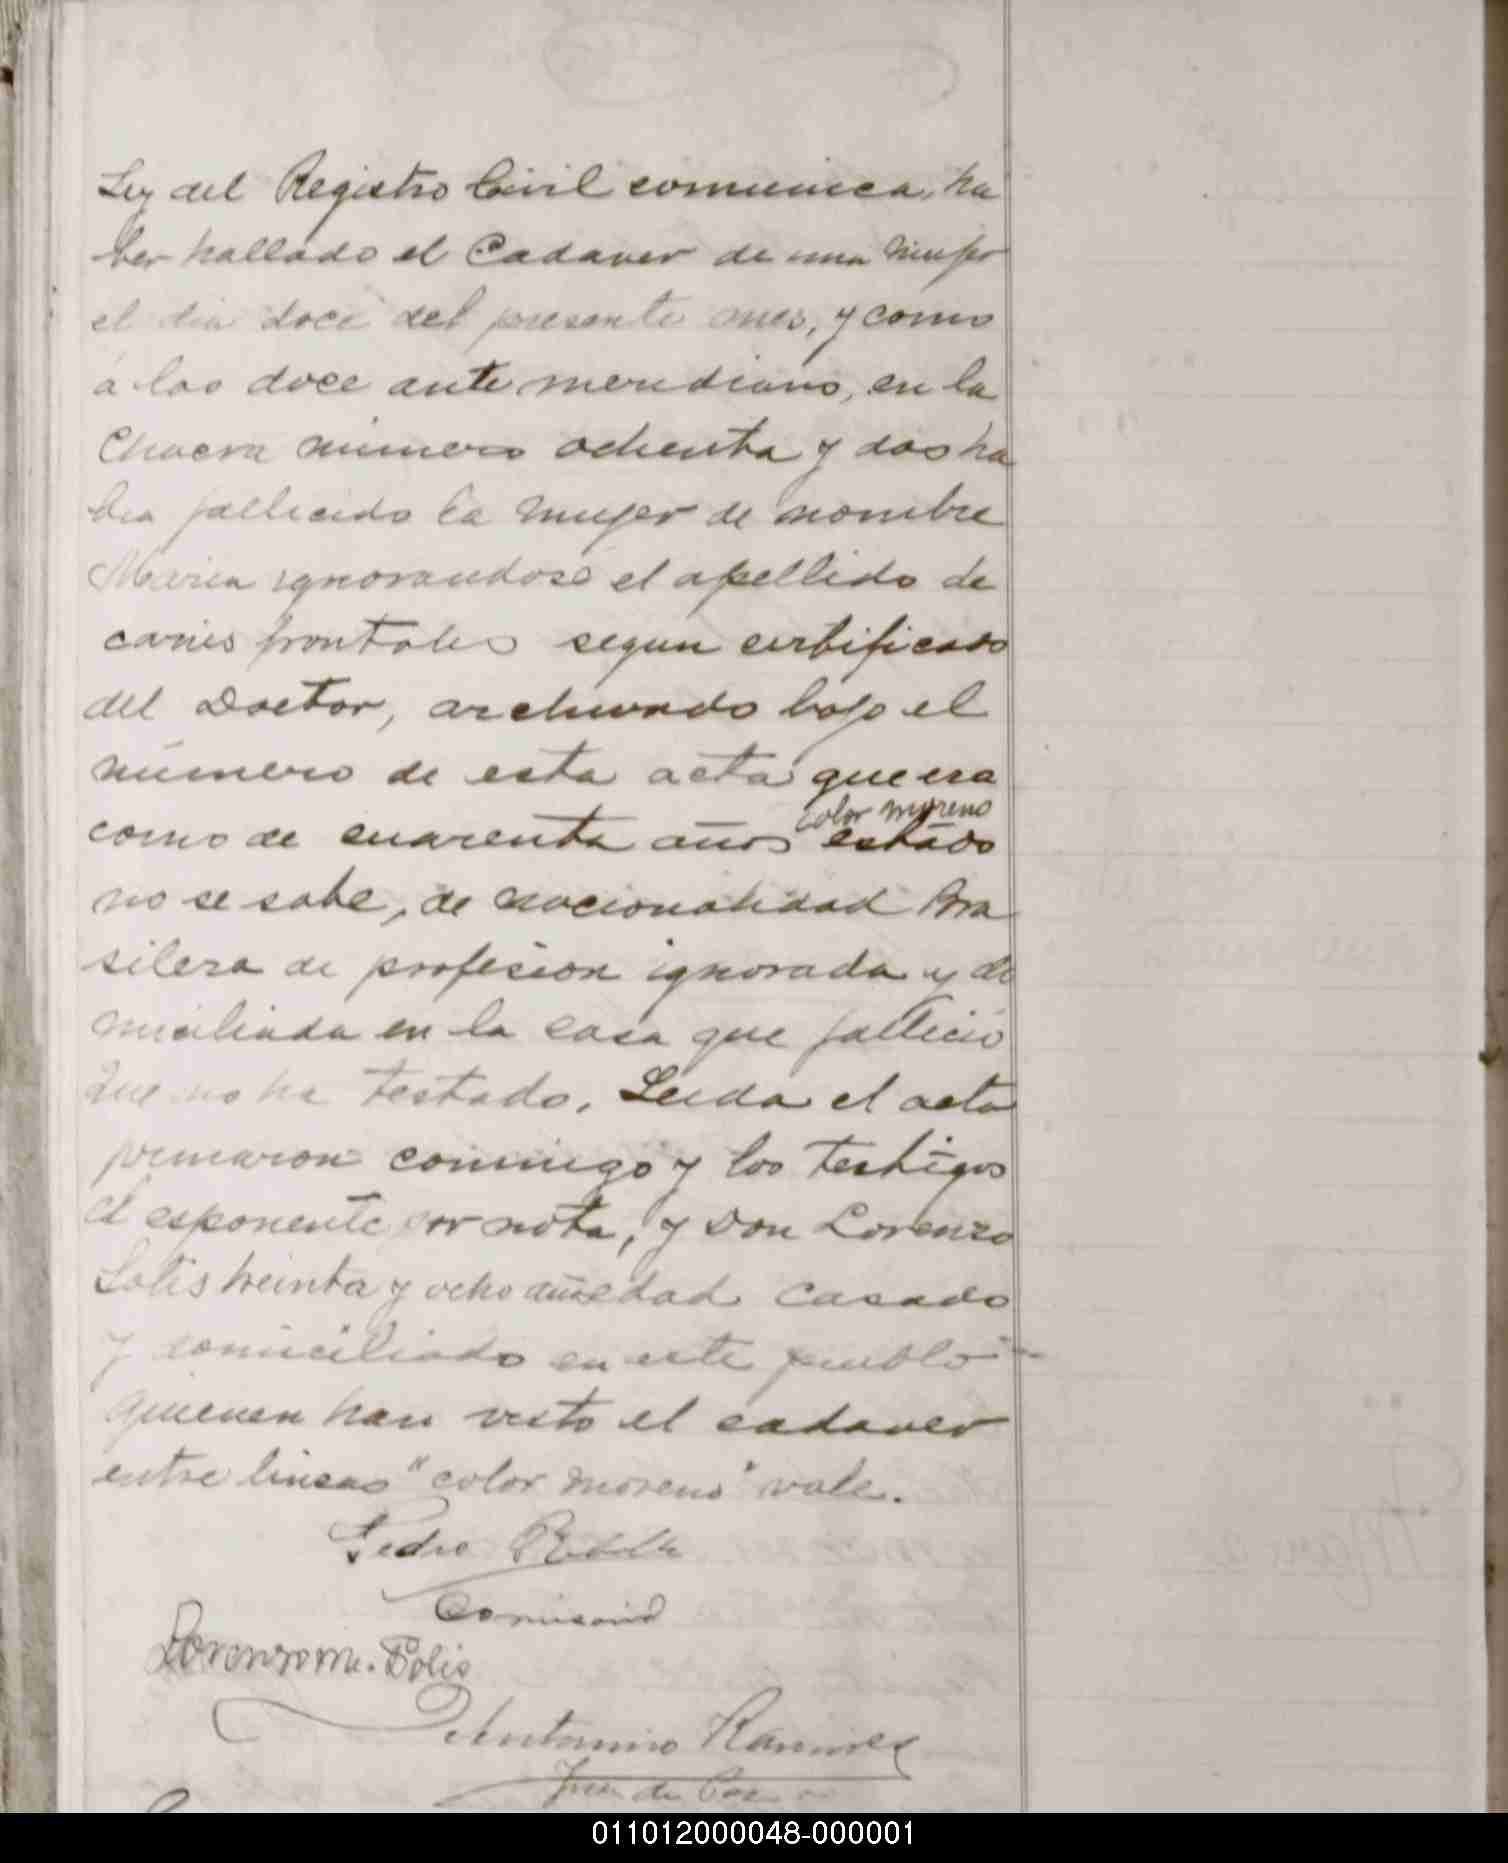 Ley del Registro Civil comunica, ha
ber hallado el Cadaver de una mujer
el dia doce del presente mes, y como
á las doce ante meridiano, en la
Chacra número ochenta y dos ha
bia fallecido la mujer de nombre
Maria ignorandose el apellido de
caries frontales segun certificado
del Doctor, archivado bajo el
número de esta acta que era
color moreno
como de cuarenta años estado
no se sabe, de nacionalidad Bra
silera de profesion ignorada y do
miciliada en la casa que fallecio
que no ha testado. Leida el acta
firmaron conmigo y los testigos
el esponente por nota, y Don Lorenzo
Solis treinta y ocho años edad casado
y domiciliado en este pueblo
quienen han visto el cadaver
entre lineas "color moreno" vale.
Pedro
Comisario
Lorenzo M. Solis
Antonio Ramirez
Juez de Paz
011012000048-000001